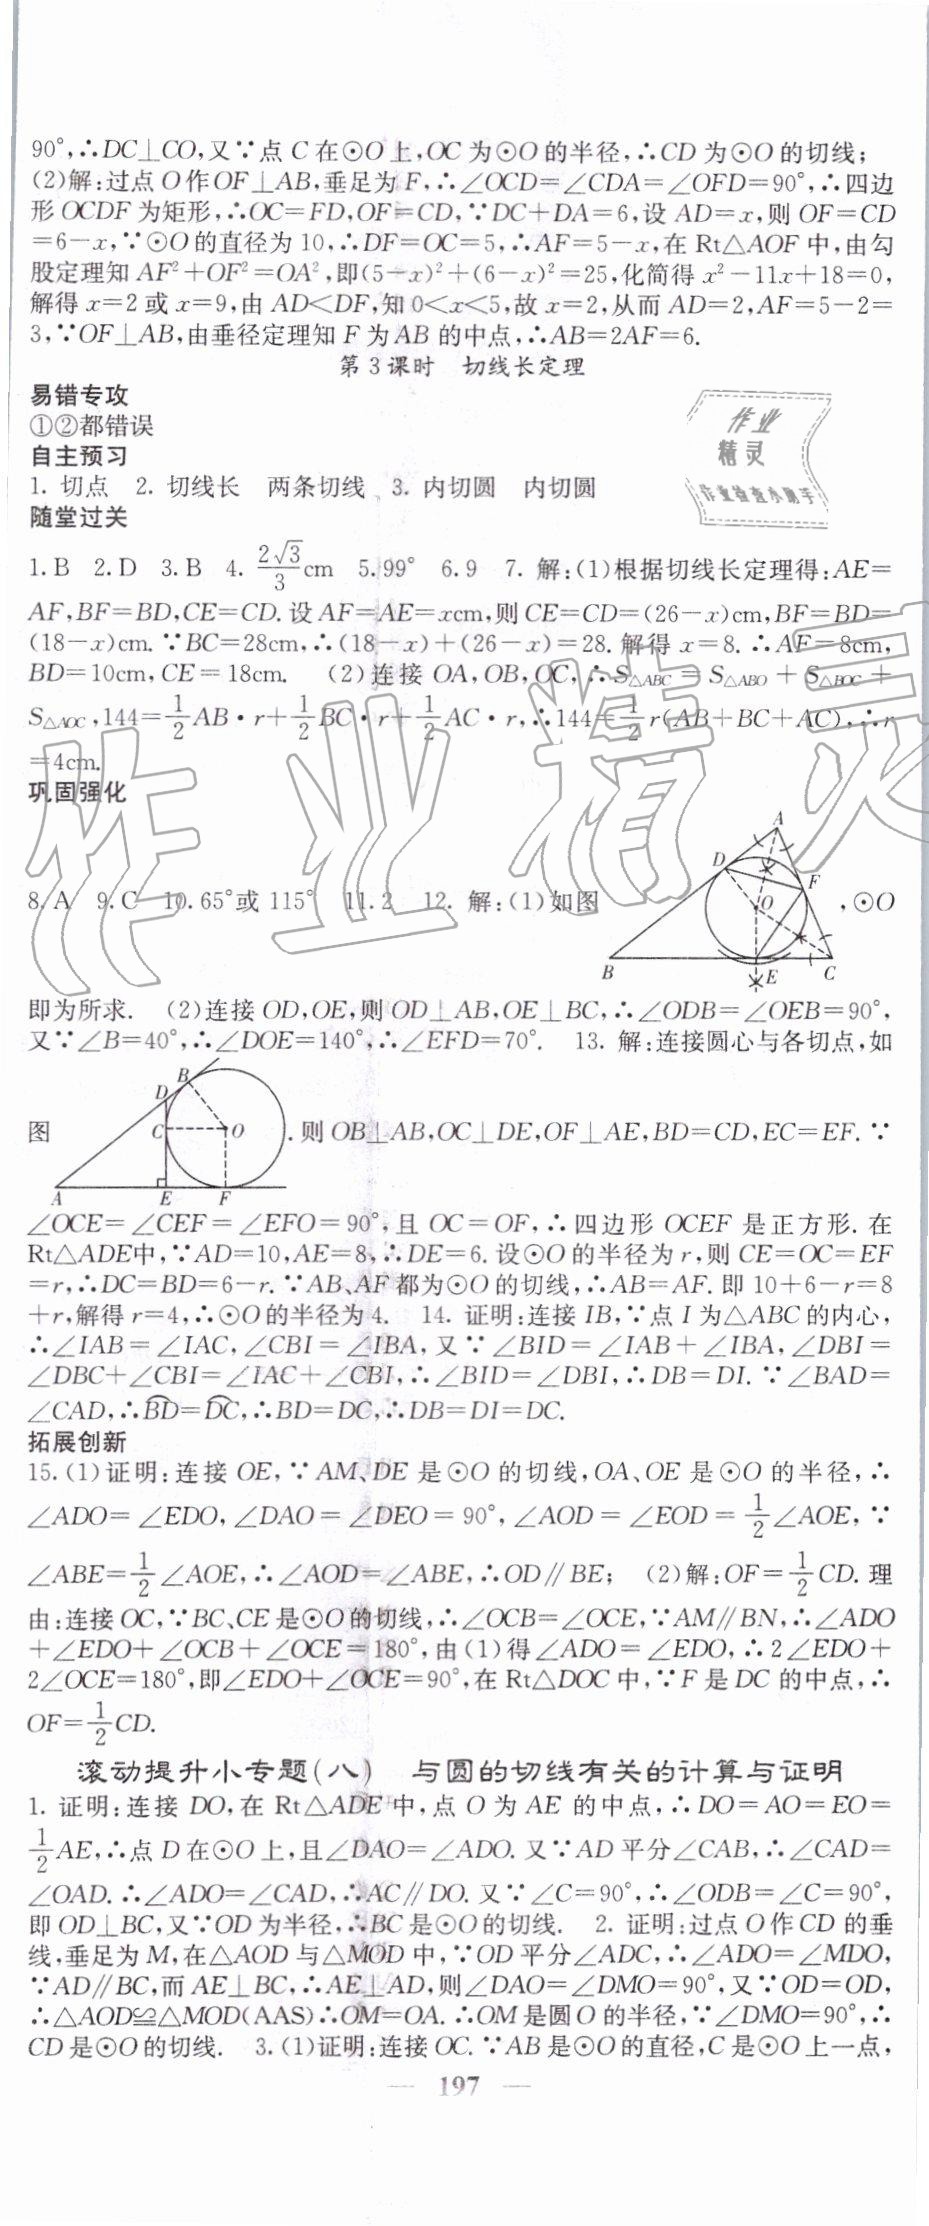 90°,∴DC⊥CO,又∵点C在⊙O上,OC为⊙O的半径,∴CD为⊙O的切线;
(2)解:过点O作OF⊥AB,垂足为F,∴∠OCD=∠CDA=∠OFD=90°,∴四边
形OCDF为矩形,∴OC=FD,OF=CD,∵DC+DA=6,设AD=x,则OF=CD
=6-x,∵⊙O的直径为10,∴DF=OC=5,∴AF=5-x,在Rt△AOF中,由勾
股定理知AF²+OF²=OA²,即(5-x)²+(6-x)²=25,化简得x²-11x+18=0,
解得x=2或x=9,由AD<DF,知0<x<5,故x=2,从而AD=2,AF=5-2=
3,∵OF⊥AB,由垂径定理知F为AB的中点,∴AB=2AF=6.
第3课时 切线长定理
易错专攻
①②都错误
自主预习
1. 切点 2. 切线长 两条切线 3. 内切圆 内切圆
作业
精灵
作业检查小助手
随堂过关
1. B 2. D 3. B 4. 2√3/3 cm 5. 99° 6. 9 7. 解:(1)根据切线长定理得:AE=
AF,BF=BD,CE=CD.设AF=AE=xcm,则CE=CD=(26-x)cm,BF=BD=
(18-x)cm.∵BC=28cm,∴(18-x)+(26-x)=28.解得x=8.∴AF=8cm,
BD=10cm,CE=18cm. (2)连接OA,OB,OC,∴S△ABC=S△ABO+S△BOC+
S△AOC,144=1/2AB·r+1/2BC·r+1/2AC·r,∴144=1/2r(AB+BC+AC),∴r
=4cm.
作业精灵
巩固强化
8. A 9. C 10. 65°或115° 11. 2 12. 解:(1)如图 A D F O B E C ,⊙O
即为所求. (2)连接OD,OE,则OD⊥AB,OE⊥BC,∴∠ODB=∠OEB=90°,
又∵∠B=40°,∴∠DOE=140°,∴∠EFD=70°. 13. 解:连接圆心与各切点,如
图 B D C O A E F .则OB⊥AB,OC⊥DE,OF⊥AE,BD=CD,EC=EF.∵
∠OCE=∠CEF=∠EFO=90°,且OC=OF,∴四边形OCEF是正方形.在
Rt△ADE中,∵AD=10,AE=8,∴DE=6.设⊙O的半径为r,则CE=OC=EF
=r,∴DC=BD=6-r.∵AB、AF都为⊙O的切线,∴AB=AF.即10+6-r=8
+r,解得r=4,∴⊙O的半径为4. 14. 证明:连接IB,∵点I为△ABC的内心,
∴∠IAB=∠IAC,∠CBI=∠IBA,又∵∠BID=∠IAB+∠IBA,∠DBI=
∠DBC+∠CBI=∠IAC+∠CBI,∴∠BID=∠DBI,∴DB=DI.∵∠BAD=
∠CAD,∴B͡D=D͡C,∴BD=DC,∴DB=DI=DC.
拓展创新
15. (1)证明:连接OE,∵AM、DE是⊙O的切线,OA、OE是⊙O的半径,∴
∠ADO=∠EDO,∠DAO=∠DEO=90°,∠AOD=∠EOD=1/2∠AOE,∵
∠ABE=1/2∠AOE,∴∠AOD=∠ABE,∴OD∥BE; (2)解:OF=1/2CD.理
由:连接OC,∵BC、CE是⊙O的切线,∴∠OCB=∠OCE,∵AM∥BN,∴∠ADO
+∠EDO+∠OCB+∠OCE=180°,由(1)得∠ADO=∠EDO,∴2∠EDO+
2∠OCE=180°,即∠EDO+∠OCE=90°,在Rt△DOC中,∵F是DC的中点,∴
OF=1/2CD.
滚动提升小专题(八) 与圆的切线有关的计算与证明
1. 证明:连接DO,在Rt△ADE中,点O为AE的中点,∴DO=AO=EO=
1/2AE,∴点D在⊙O上,且∠DAO=∠ADO.又∵AD平分∠CAB,∴∠CAD=
∠OAD.∴∠ADO=∠CAD,∴AC∥DO.又∵∠C=90°,∴∠ODB=∠C=90°,
即OD⊥BC,又∵OD为半径,∴BC是⊙O的切线. 2. 证明:过点O作CD的垂
线,垂足为M,在△AOD与△MOD中,∵OD平分∠ADC,∴∠ADO=∠MDO,
∵AD∥BC,而AE⊥BC,∴AE⊥AD,则∠DAO=∠DMO=90°,又∵OD=OD,
∴△AOD≌△MOD(AAS)∴OM=OA.∴OM是圆O的半径,∵∠DMO=90°,∴
CD是⊙O的切线. 3. (1)证明:连接OC.∵AB是⊙O的直径,C是⊙O上一点,
— 197 —